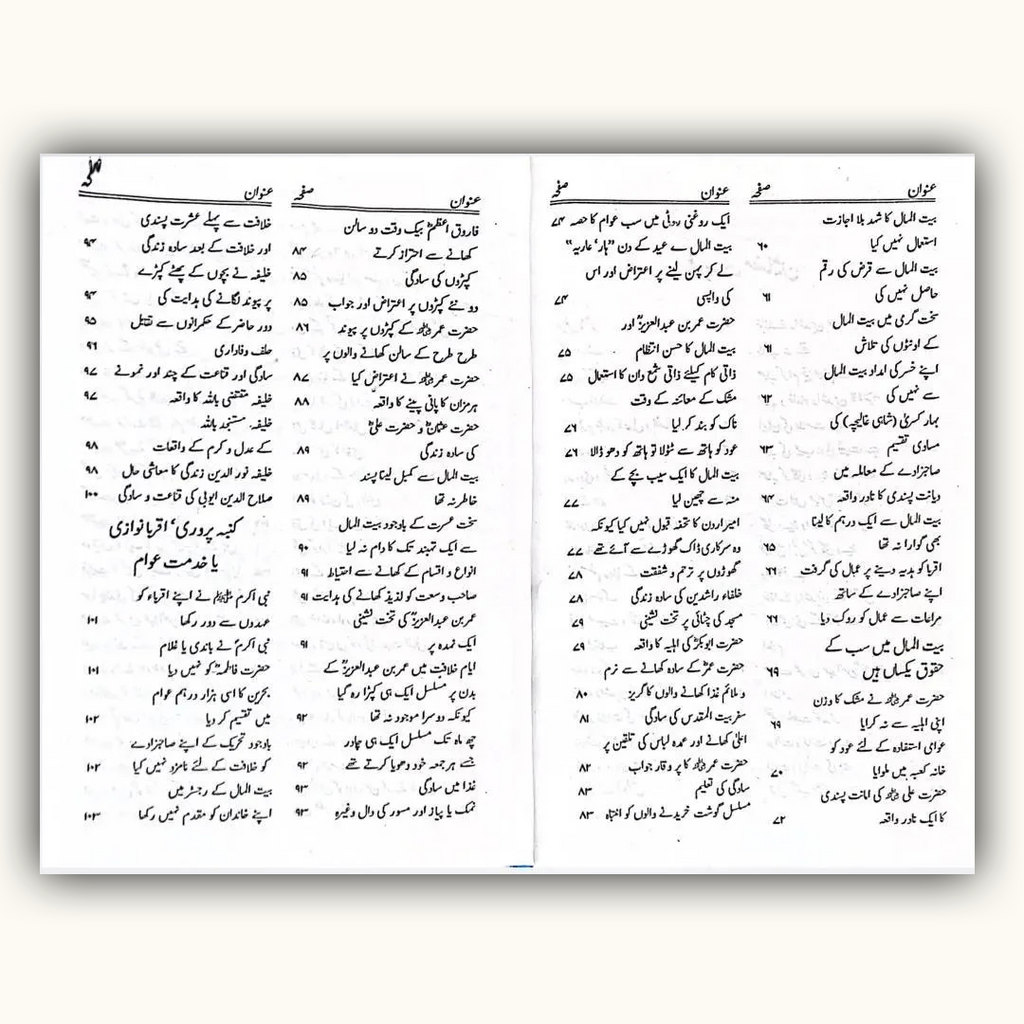 عنوان صفحہ
بیت المال کا شہد بلا اجازت
استعمال نہیں کیا ۶۰
بیت المال سے قرض کی رقم
حاصل نہیں کی ۶۱
سخت گرمی میں بیت المال
کے اونٹوں کی تلاش ۶۱
اپنے خسر کی امداد بیت المال
سے نہیں کی ۶۲
بہار کسریٰ (شاہی غالیچہ) کی
مساوی تقسیم ۶۳
صاحبزادے کے معاملہ میں
دیانت پسندی کا نادر واقعہ ۶۴
بیت المال سے ایک درہم کا لینا
بھی گوارا نہ تھا ۶۵
اقربا کو ہدیہ دینے پر عمال کی گرفت ۶۶
اپنے صاحبزادے کے ساتھ
مراعات سے عمال کو روک دیا ۶۶
بیت المال میں سب کے
حقوق یکساں ہیں ۶۹
حضرت عمرؓ نے مشک کا وزن
اپنی اہلیہ سے نہ کرایا ۶۹
عوامی استفادہ کے لئے عود کو
خانہ کعبہ میں ملوایا ۷۰
حضرت علیؓ کی امانت پسندی
کا ایک نادر واقعہ ۷۲
عنوان صفحہ
ایک روغنی روٹی میں سب عوام کا حصہ ۷۴
بیت المال سے عید کے دن "ہار‘ عاریہ"
لے کر پہن لینے پر اعتراض اور اس
کی واپسی ۷۴
حضرت عمر بن عبدالعزیزؒ اور
بیت المال کا حسن انتظام ۷۵
ذاتی کام کیلئے ذاتی شمع دان کا استعمال ۷۵
مشک کے معائنہ کے وقت
ناک کو بند کر لیا ۷۶
عود کو ہاتھ سے ٹٹولا تو ہاتھ کو دھو ڈالا ۷۶
بیت المال کا ایک سیب بچے کے
منہ سے چھین لیا ۷۷
امیر اردن کا تحفہ قبول نہیں کیا کیونکہ
وہ سرکاری ڈاک گھوڑے سے آئے تھے ۷۷
گھوڑوں پر ترحم و شفقت ۷۸
خلفاء راشدین کی سادہ زندگی ۷۸
مسجد کی چٹائی پر تخت نشینی ۷۹
حضرت ابوبکرؓ کی اہلیہ کا واقعہ ۷۹
حضرت عمرؓ کے سادہ کھانے سے نرم
و ملائم غذا کھانے والوں کا گریز ۸۰
سفر بیت المقدس کی سادگی ۸۱
اعلیٰ کھانے اور عمدہ لباس کی تلقین پر
حضرت عمرؓ کا پر وقار جواب ۸۲
سادگی کی تعلیم ۸۳
مسلسل گوشت خریدنے والوں کو انتباہ ۸۳
عنوان صفحہ
فاروق اعظمؓ بیک وقت دو سالن
کھانے سے احتراز کرتے ۸۴
کپڑوں کی سادگی ۸۵
دو نئے کپڑوں پر اعتراض اور جواب ۸۵
حضرت عمرؓ کے کپڑوں پر پیوند ۸۶
طرح طرح کے سالن کھانے والوں پر
حضرت عمرؓ نے اعتراض کیا ۸۷
ہرمزان کا پانی پینے کا واقعہ ۸۸
حضرت عثمانؓ و حضرت علیؓ
کی سادہ زندگی ۸۹
بیت المال سے کمبل لینا پسند
خاطر نہ تھا ۸۹
سخت عسرت کے باوجود بیت المال
سے ایک تہبند تک کا دام نہ لیا ۹۰
انواع و اقسام کے کھانے سے احتیاط ۹۱
صاحب وسعت کو لذیذ کھانے کی ہدایت ۹۱
عمر بن عبدالعزیزؒ کی تخت نشینی
ایک نمدہ پر ۹۱
ایام خلافت میں عمر بن عبدالعزیزؒ کے
بدن پر مسلسل ایک ہی کپڑا رہ گیا
کیونکہ دوسرا موجود نہ تھا ۹۲
چھ ماہ تک مسلسل ایک ہی چادر
جسے ہر جمعہ خود دھویا کرتے تھے ۹۲
غذا میں سادگی ۹۳
نمک یا پیاز اور مسور کی دال وغیرہ ۹۳
عنوان صفحہ
خلافت سے پہلے عشرت پسندی
اور خلافت کے بعد سادہ زندگی ۹۴
خلیفہ نے بچوں کے پھٹے کپڑے
پر پیوند لگانے کی ہدایت کی ۹۴
دور حاضر کے حکمرانوں سے تقابل ۹۵
حلف وفاداری ۹۶
سادگی اور قناعت کے چند اور نمونے ۹۷
خلیفہ مقتفی باللہ کا واقعہ ۹۷
خلیفہ مستنجد باللہ
کے عدل و کرم کے واقعات ۹۸
خلیفہ نور الدین زندگی کا معاشی حال ۹۸
صلاح الدین ایوبی کی قناعت و سادگی ۱۰۰
کنبہ پروری‘ اقربا نوازی
یا خدمت عوام
نبی اکرم ﷺ نے اپنے اقرباء کو
عہدوں سے دور رکھا ۱۰۱
نبی اکرمؐ نے باندی یا غلام
حضرت فاطمہؓ کو نہیں دیا ۱۰۱
بحرین کا اسی ہزار درہم عوام
میں تقسیم کر دیا ۱۰۲
باوجود تحریک کے اپنے صاحبزادے
کو خلافت کے لئے نامزد نہیں کیا ۱۰۲
بیت المال کے رجسٹر میں
اپنے خاندان کو مقدم نہیں رکھا ۱۰۳